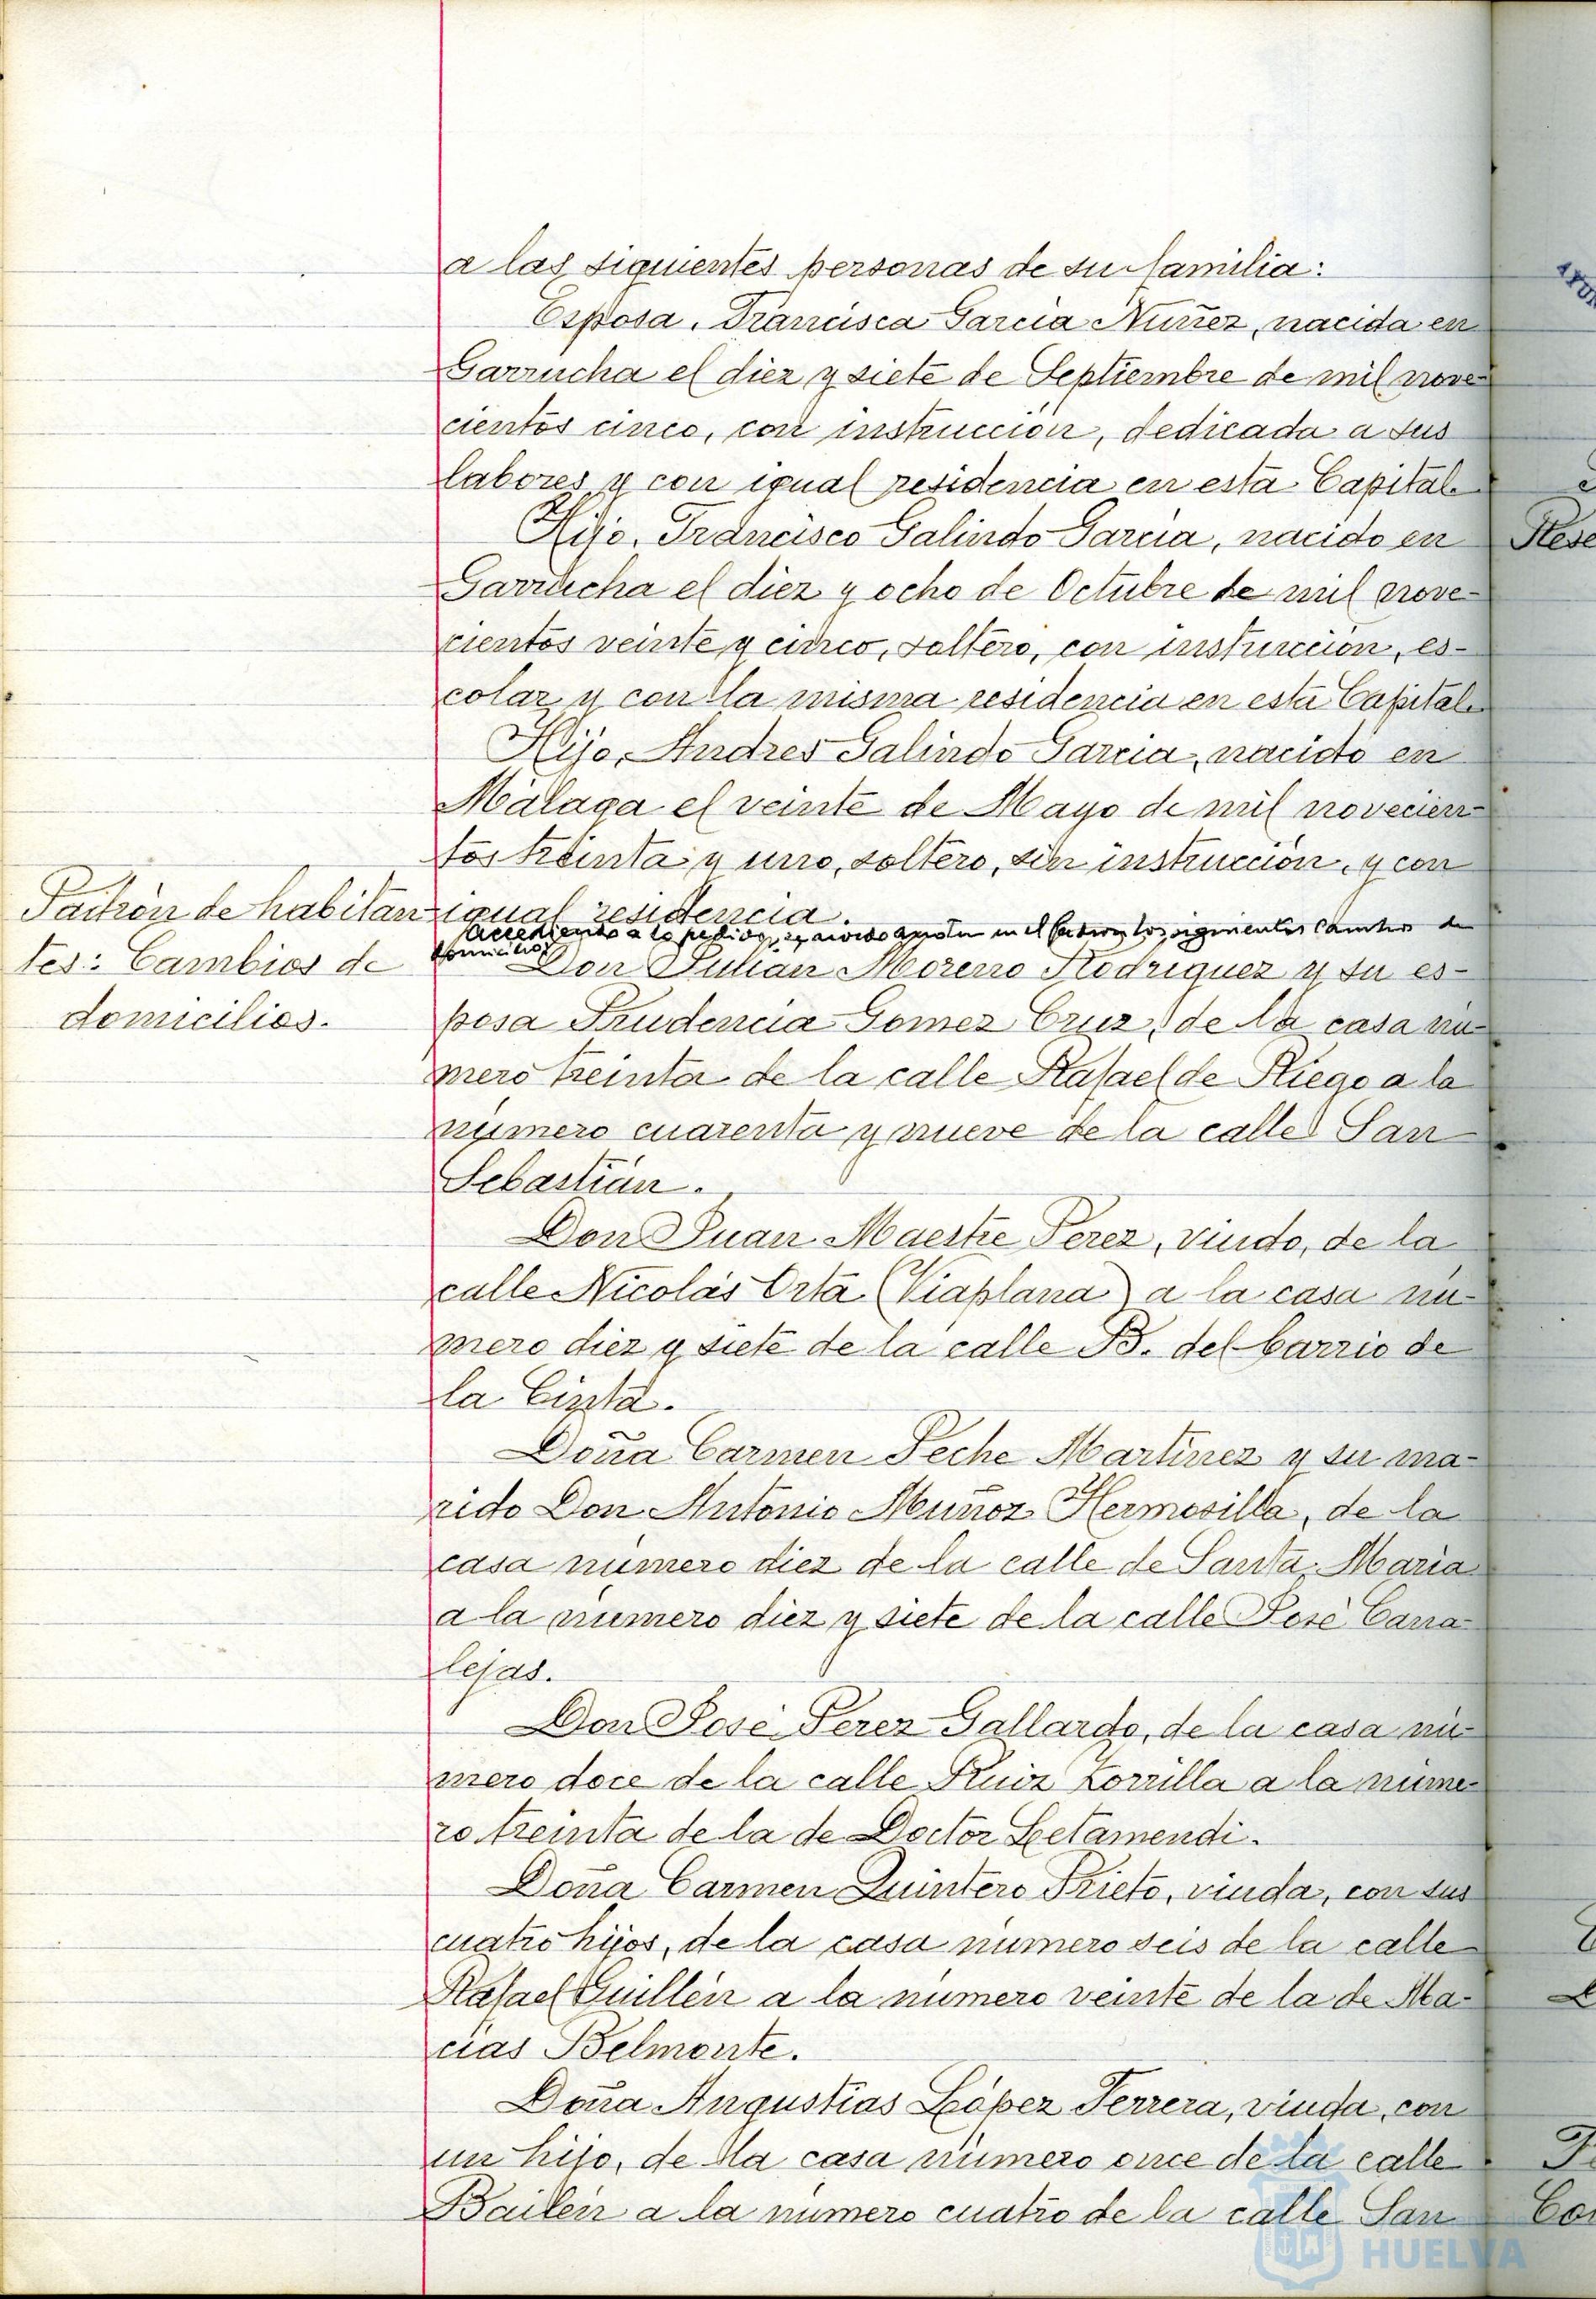 a las siguientes personas de su familia:
Esposa, Francisca Garcia Nuñez, nacida en
Garrucha el diez y siete de Septiembre de mil nove-
cientos cinco, con instrucción, dedicada a sus
labores y con igual residencia en esta Capital.
Hijo, Francisco Galindo Garcia, nacido en
Garrucha el diez y ocho de Octubre de mil nove-
cientos veinte y cinco, soltero, con instrucción, es-
colar y con la misma residencia en esta Capital.
Hijo, Andres Galindo Garcia, nacido en
Málaga el veinte de Mayo de mil novecien-
tos treinta y uno, soltero, sin instrucción, y con
igual residencia.
Padrón de habitan
tes: Cambios de
domicilios.
Accediendo a lo pedido, se acordó anotar en el Padron los siguientes cambios de
domicilio:
Don Julián Moreno Rodriguez y su es-
posa Prudencia Gomez Cruz, de la casa nú-
mero treinta de la calle Rafael de Riego a la
número cuarenta y nueve de la calle San
Sebastián.
Don Juan Maestre Perez, viudo, de la
calle Nicolás Orta (Viaplana) a la casa nú-
mero diez y siete de la calle B. del barrio de
la Cinta.
Doña Carmen Peche Martinez y su ma-
rido Don Antonio Muñoz Hermosilla, de la
casa número diez de la calle de Santa Maria
a la número diez y siete de la calle José Cana-
lejas.
Don José Perez Gallardo, de la casa nú-
mero doce de la calle Ruiz Zorrilla a la núme-
ro treinta de la de Doctor Letamendi.
Doña Carmen Quintero Prieto, viuda, con sus
cuatro hijos, de la casa número seis de la calle
Rafael Guillén a la número veinte de la de Ma-
cias Belmonte.
Doña Angustias López Ferrera, viuda, con
un hijo, de la casa número once de la calle
Bailén a la número cuatro de la calle San
HUELVA